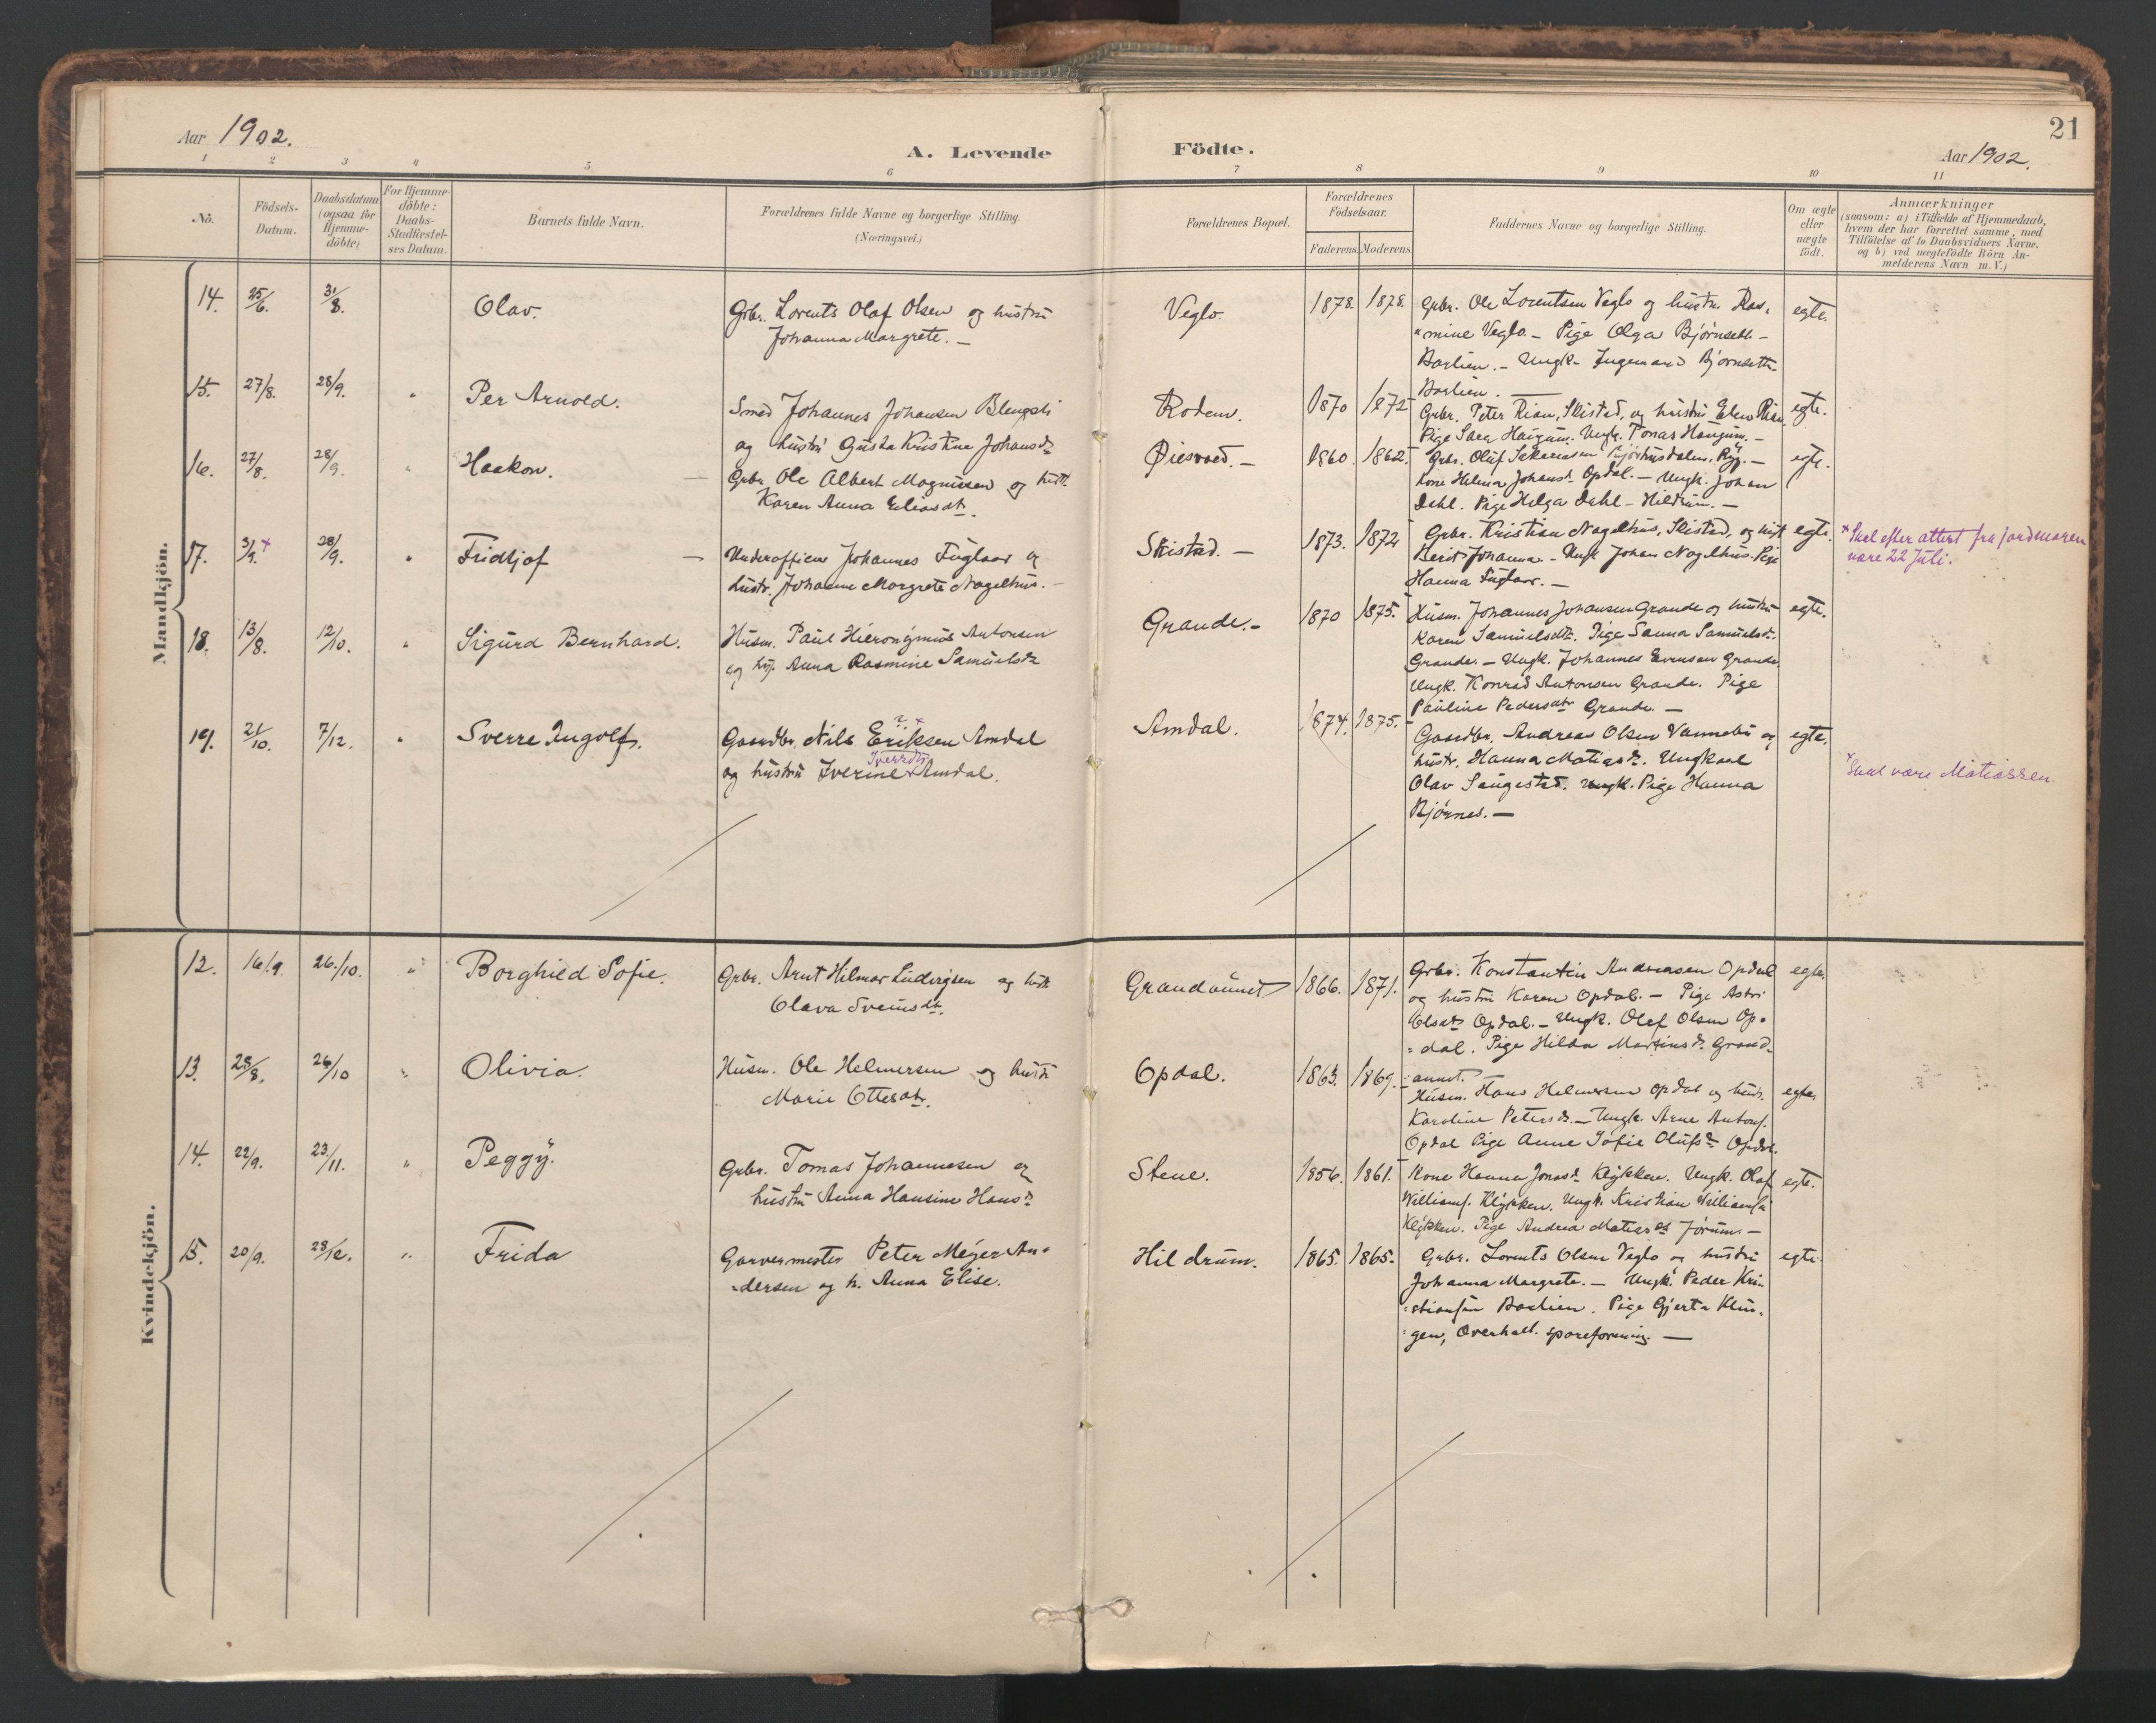 Aar 1902.
A. Levende Födte.
Aar 1902.
21
1 2 3 4 5 6 7 8 9 10 11
No.
Födsels-Datum.
Daabsdatum (ogsaa for Hjemme-döbte)
For Hjemme-döbte: Daabs-Stadfestel-ses Datum.
Barnets fulde Navn.
Forældrenes fulde Navne og borgerlige Stilling. (Næringsvei.)
Forældrenes Bopæl.
Forældrenes Födselsaar.
Faderens. Moderens.
Faddernes Navne og borgerlige Stilling.
Om ægte eller uægte födt.
Anmærkninger
(saasom: a) i Tilfælde af Hjemmedaab,
hvem der har forrettet samme, med
Tilföielse af to Daabsvidners Navne.
og b) ved uægtefödte Börn An-
melderens Navn m.V.)
Mandkjön.
14. 25/6. 31/8. Olav.
Grbr. Lorents Olaf Olsen og hustru
Johanna Margrete. —
Veglo. 1878. 1878.
Grbr. Ole Lorentsen Veglo og hustr. Ras-
"mine Veglo. — Pige Olga Björnseth —
Barlien. — Ungk. Ingemand Björnseth
Barlien. —
egte.
15. 27/8. 28/9. " Per Arnold.
Smed Johannes Johansen Blengsli
og hustru Gusta Kristine Johansdtr
Rodem. 1870 1872
Grbr. Peter Rian, Skistad, og hustru Elen Rian
Pige Sara Haugum. Ungk. Tonas Haugum. —
egte.
16. 27/8. 28/9. " Haakon. —
Grbr. Ole Albert Magnussen og hustr.
Karen Anna Eliasdtr.
Øiesvoed. — 1860. 1862.
Grbr. Oluf Sakariasen —
Kone Helma Johansdtr Opdal. — Ungk. Johan
Dahl. Pige Helga Dahl — Hildrum. —
egte.
17. 3/9. + 28/9. " Fridtjof —
Underofficer Johannes Fuglaar og
hustr. Johanne Margrete Nagelhus. —
Skistad. — 1873. 1872
Grbr. Kristian Nagelhus, Skistad, og hust
Berit Johanna — Ungk Johan Nagelhus. Pige
Hanna Fuglaar. —
egte.
+ Skal efter attest fra jordmoren
være 22 Juli.
18. 13/8. 12/10. " Sigurd Bernhard.
Husm. Paul Hieronymus Antonsen
og hus. Anna Rasmine Samuelsdtr
Grande. — 1870 1875.
Husm. Johannes Johansen Grande og hustru
Karen Samuelsdtr. Pige Sanna Samuelsdtr.
Grande. — Ungk. Johannes Evensen Grande.
Ungk. Konrad Antonsen Grande. Pige
Pauline Pedersdtr Grande. —
egte.
19. 21/10. 7/12. " Sverre Ingolf.
Gaardbr. Nils Eriksen Amdal
? x
og hustru Iverine x Amdal.
Iversdtr
Amdal. 1874. 1875.
Gaardbr. Andreas Olsen Vannebu og
hustr. Hanna Matiasdtr. Ungkarl
Olav Saugestad. Ungk. Pige Hanna
Björnes. —
egte.
x Skal være Matiassen.
Kvindekjön.
12. 16/9. 26/10. " Borghild Sofie.
Grbr. Arnt Hilmar Ludvigsen og hustr
Olava Svensdtr.
Grandaunet 1866. 1871.
Grbr. Konstantin Andreasen Opdal
og hustru Karen Opdal. — Pige Astri
Olsdtr Opdal. — Ungk. Olaf Olsen Op=
=dal. Pige Hilda Martinsdtr. Grand=
=aunet.
egte.
13. 28/8. 26/10 " Olivia.
Husm. Ole Helmersen og hustr
Marie Ottesdtr.
Opdal. 1863. 1869.
Husm. Hans Helmersen Opdal og hustr.
Karoline Petersdtr. — Ungk. Arne Antons.
Opdal Pige Anne Sofie Olufsdtr Opdal.
egte.
14. 22/9. 23/11. " Peggy.
Grbr. Tomas Johannesen og
hustru Anna Hansine Hansdtr
Stene. 1856. 1861.
Kone Hanna Jonasdtr Klykken. Ungk. Olaf
Williams. Klykken. Ungk. Kristian Williams.
Klykken. Pige Andrea Matiasdtr Jørum. —
egte.
15. 20/9. 28/12. " Frida
Garvermester Peter Meyer An=
=dersen og h. Anna Elise.
Hildrum. 1865. 1865.
Grbr. Lorents Olsen Veglo og hustru
Johanna Margrete. — Ungk. Peder Kri=
=stiansen Barlien. Pige Gjerta Klin=
=gen, Overhall. spareforening. —
egte.